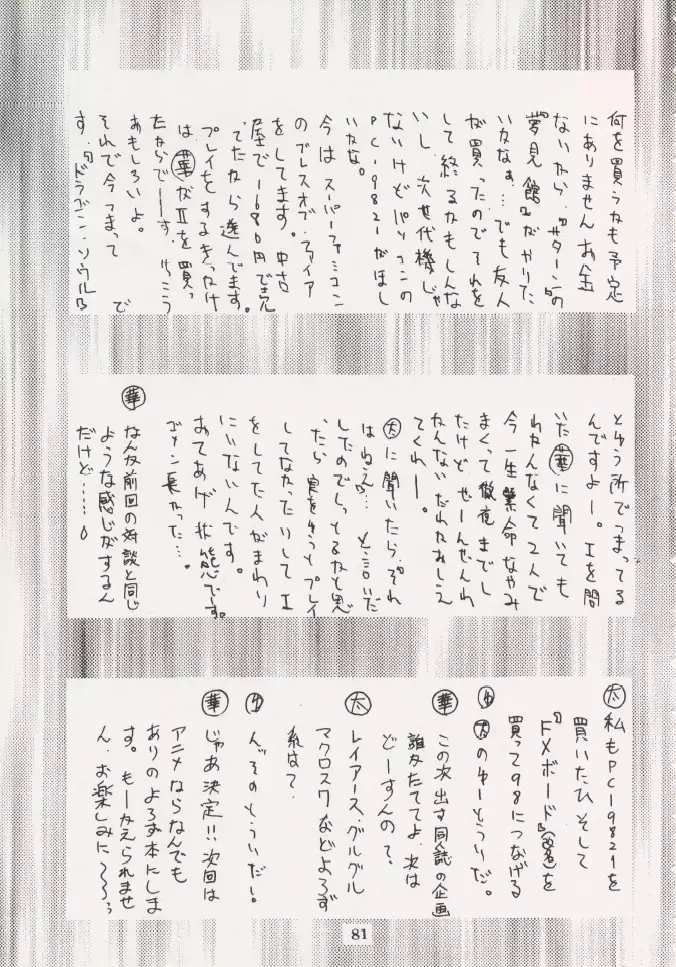 何を買うかも予定
にありません お金
ないから、『サターン』の
『夢見館』がやりた
いかなぁ…でも友人
が買ったのでそれを
して終るかもしんな
いし、次世代機じゃ
ないけどパソコンの
PC-9821がほし
いなな。
今はスーパーファミコン
のブレスオブ・ファイア
をしてます。中古
屋で1680円で売
ってたから遊んでます。
プレイをするきっかけ
は、華がⅡを買っ
たからでーす。けっこう
おもしろいよ。
それで今つまって
す。『ドラゴン・ソウル』で
とゆう所でつまってる
んですよー。Ⅰを問
いた華に聞いても
わかんなくて2人で
今一生懸命なやみ
まくって徹夜までし
たけど、ぜーんぜんわ
かんない だれかおしえ
てくれー。
太に聞いたら、それ
はねえ?…と言いだ
したのでしってるかと思
ったら実をゆうとプレイ
してなかったりして Ⅰ
をしてた人がまわり
にいないんです。
おてあげ状態です。
ゴメン長かった…。
華 なんか前回の対談と同じ
ような感じがするん
だけど……
太 私もPC-9821を
買いたひ そして
『FXボード』(改名)を
買って98につなげる
ゆ 太のゆーとうりだ。
華 この次出す同人誌の企画
誰かたててよ、次は
どーすんの?
太 レイアース、グルグル
マクロス7などよろず
系はて、
ゆ んぞのとういだー!
華 じゃあ決定!!次回は
アニメならなんでも
ありのよろず本にしま
す。もーかえられませ
ん、お楽しみに~~う
81